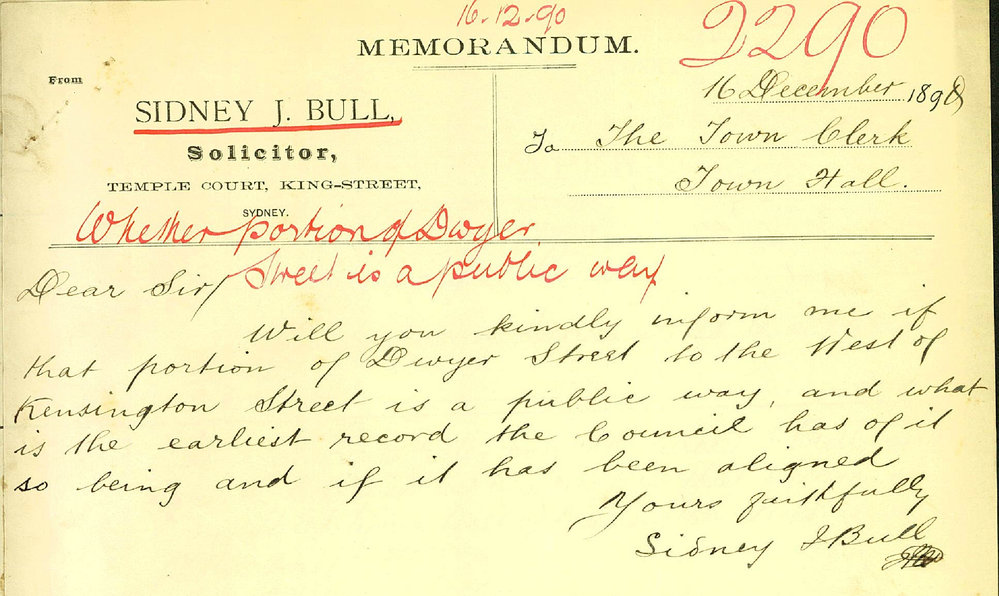 16.12.90
2290
MEMORANDUM.
From
SIDNEY J. BULL,
Solicitor,
TEMPLE COURT, KING-STREET,
SYDNEY.
16 December 1890
To The Town Clerk
Town Hall.
Whether portion of Dwyer
Street is a public way
Dear Sir
Will you kindly inform me if
that portion of Dwyer Street to the West of
Kensington Street is a public way, and what
is the earliest record the Council has of it
so being and if it has been aligned
Yours faithfully
Sidney J Bull